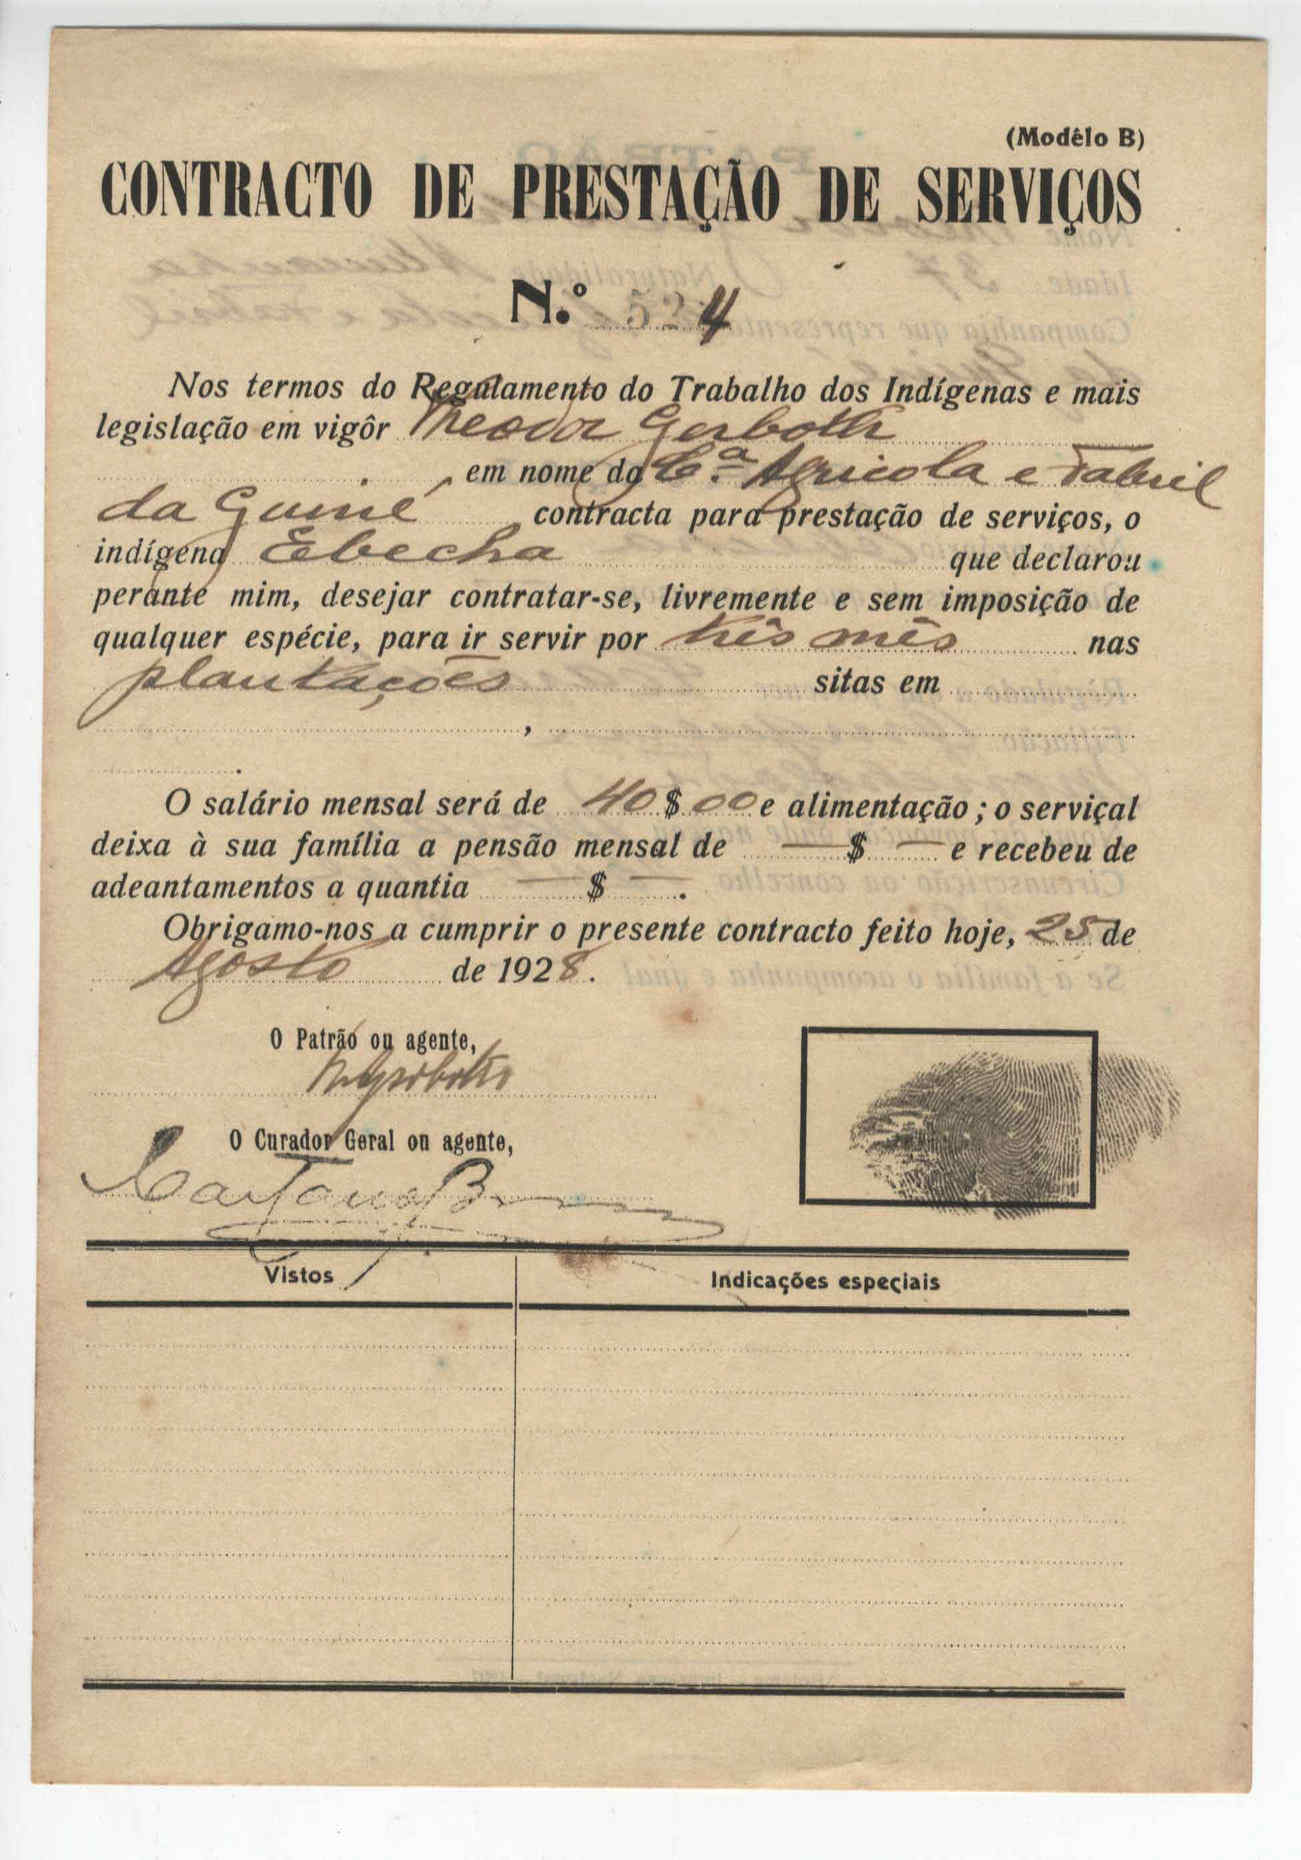 (Modêlo B)
CONTRACTO DE PRESTAÇÃO DE SERVIÇOS
N.º 524
Nos termos do Regulamento do Trabalho dos Indígenas e mais
legislação em vigôr Theodor Gerboth
em nome da C.ª Agricola e Fabril
da Guiné contracta para prestação de serviços, o
indígena Ebecha que declarou
perante mim, desejar contratar-se, livremente e sem imposição de
qualquer espécie, para ir servir por três mês nas
plantações sitas em
,
.
O salário mensal será de 40$00 e alimentação; o serviçal
deixa à sua família a pensão mensal de —$— e recebeu de
adeantamentos a quantia —$—.
Obrigamo-nos a cumprir o presente contracto feito hoje, 25 de
Agosto de 1928.
O Patrão ou agente,
O Curador Geral ou agente,
Vistos
Indicações especiais